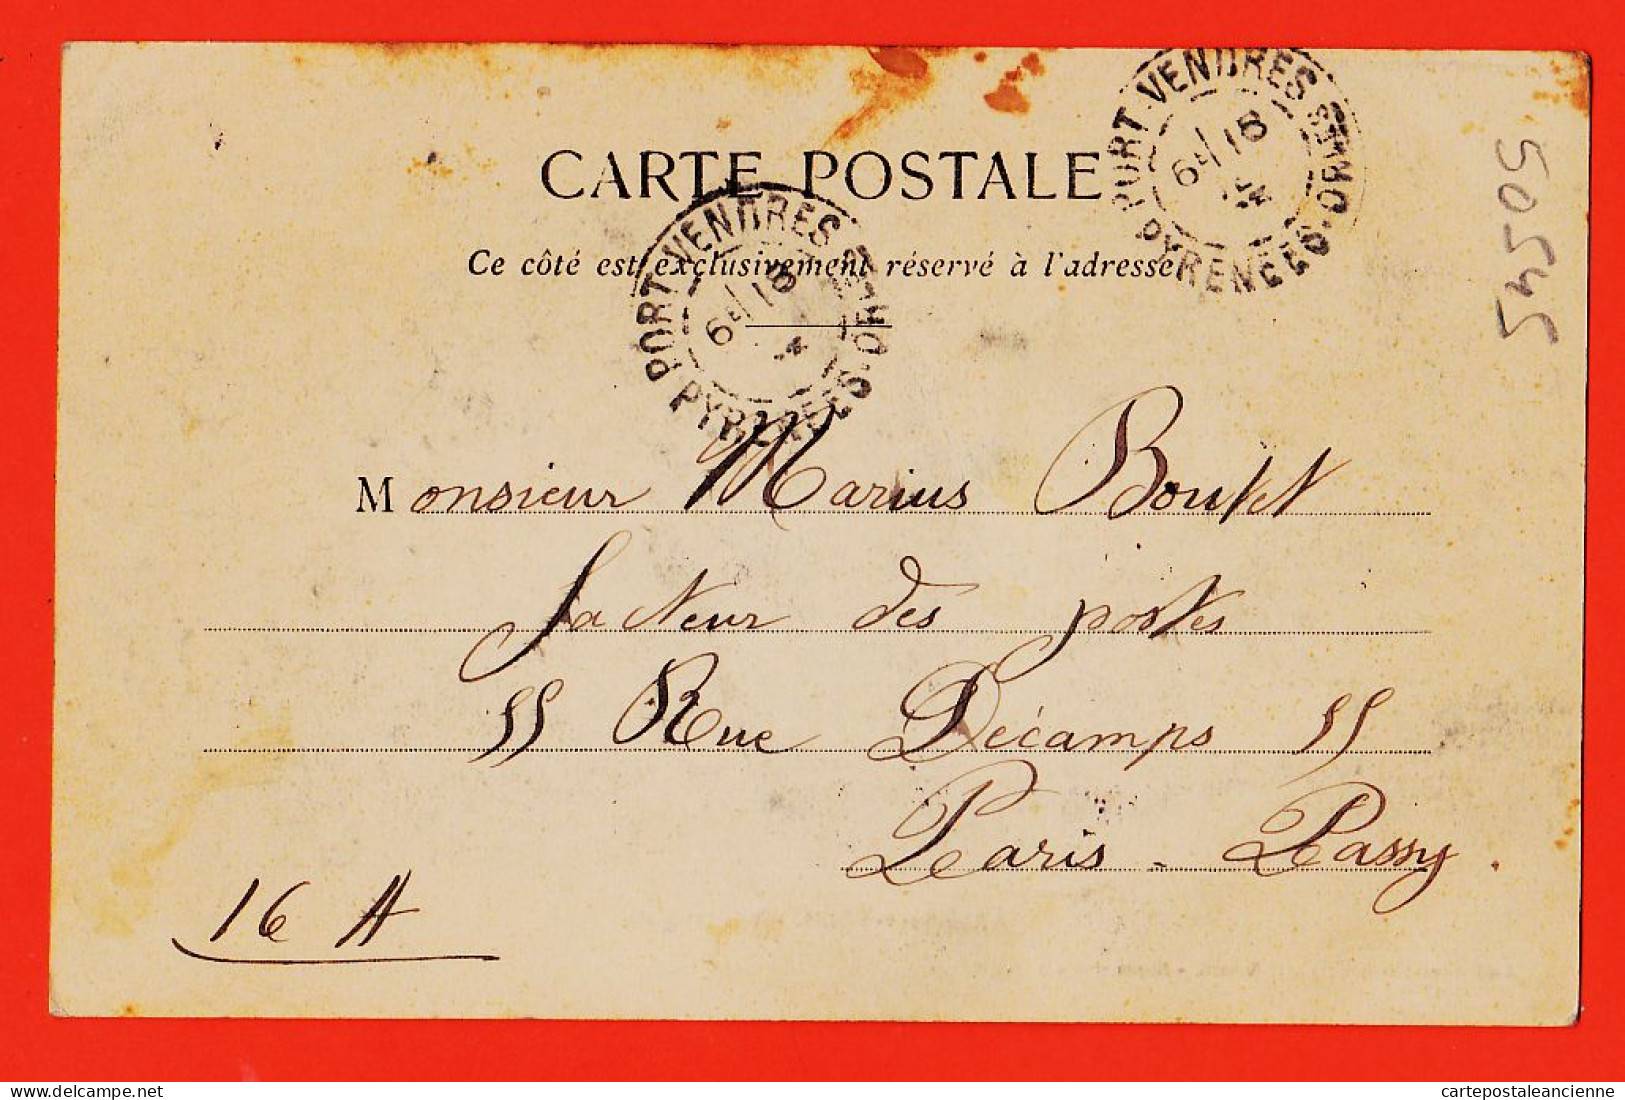 CARTE POSTALE
Ce côté est exclusivement réservé à l'adresse
PORT-VENDRES
PYRENEES-ORLES
PORT-VENDRES
PYRENEES-ORLES
Monsieur Marius Boutet
facteur des postes
55 Rue Décamps 55
Paris - Passy.
16 A
cartepostaleancienne